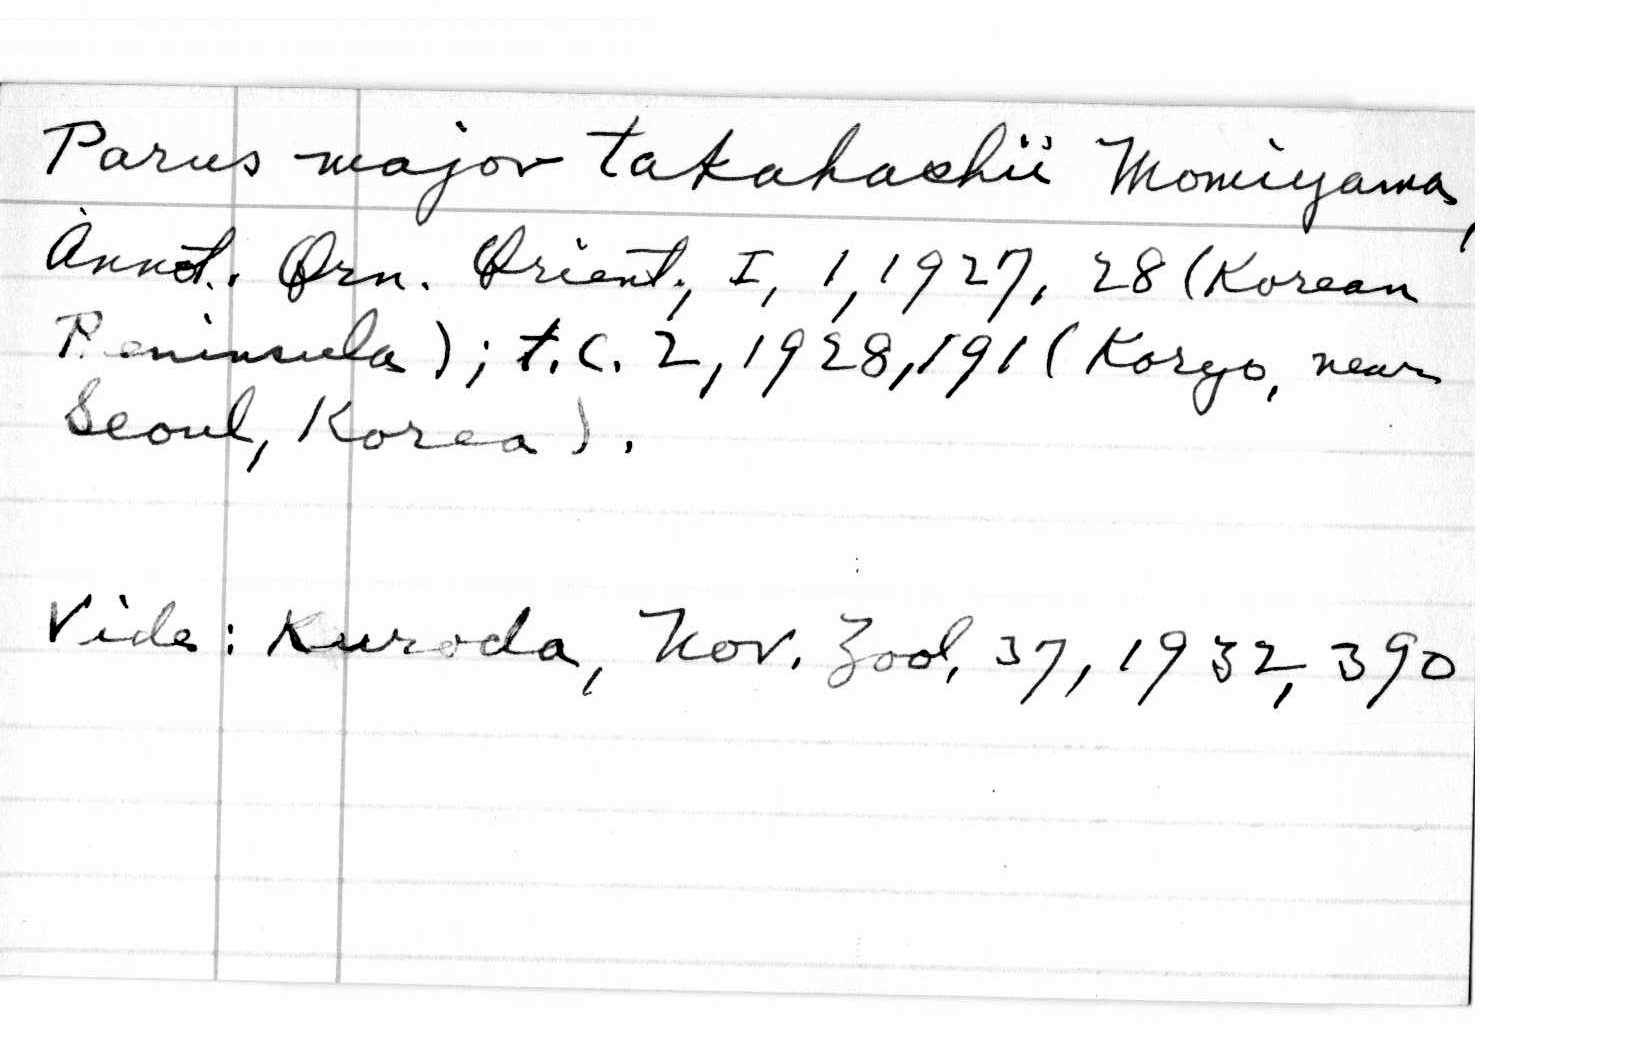 Parus major takahashii Momiyama,
Annot. Orn. Orient., I, 1, 1927, 28 (Korean
Peninsula); t.c. 2, 1928, 191 (Koryo, near
Seoul, Korea).
Vide: Kuroda, Nov. Zool, 37, 1932, 390